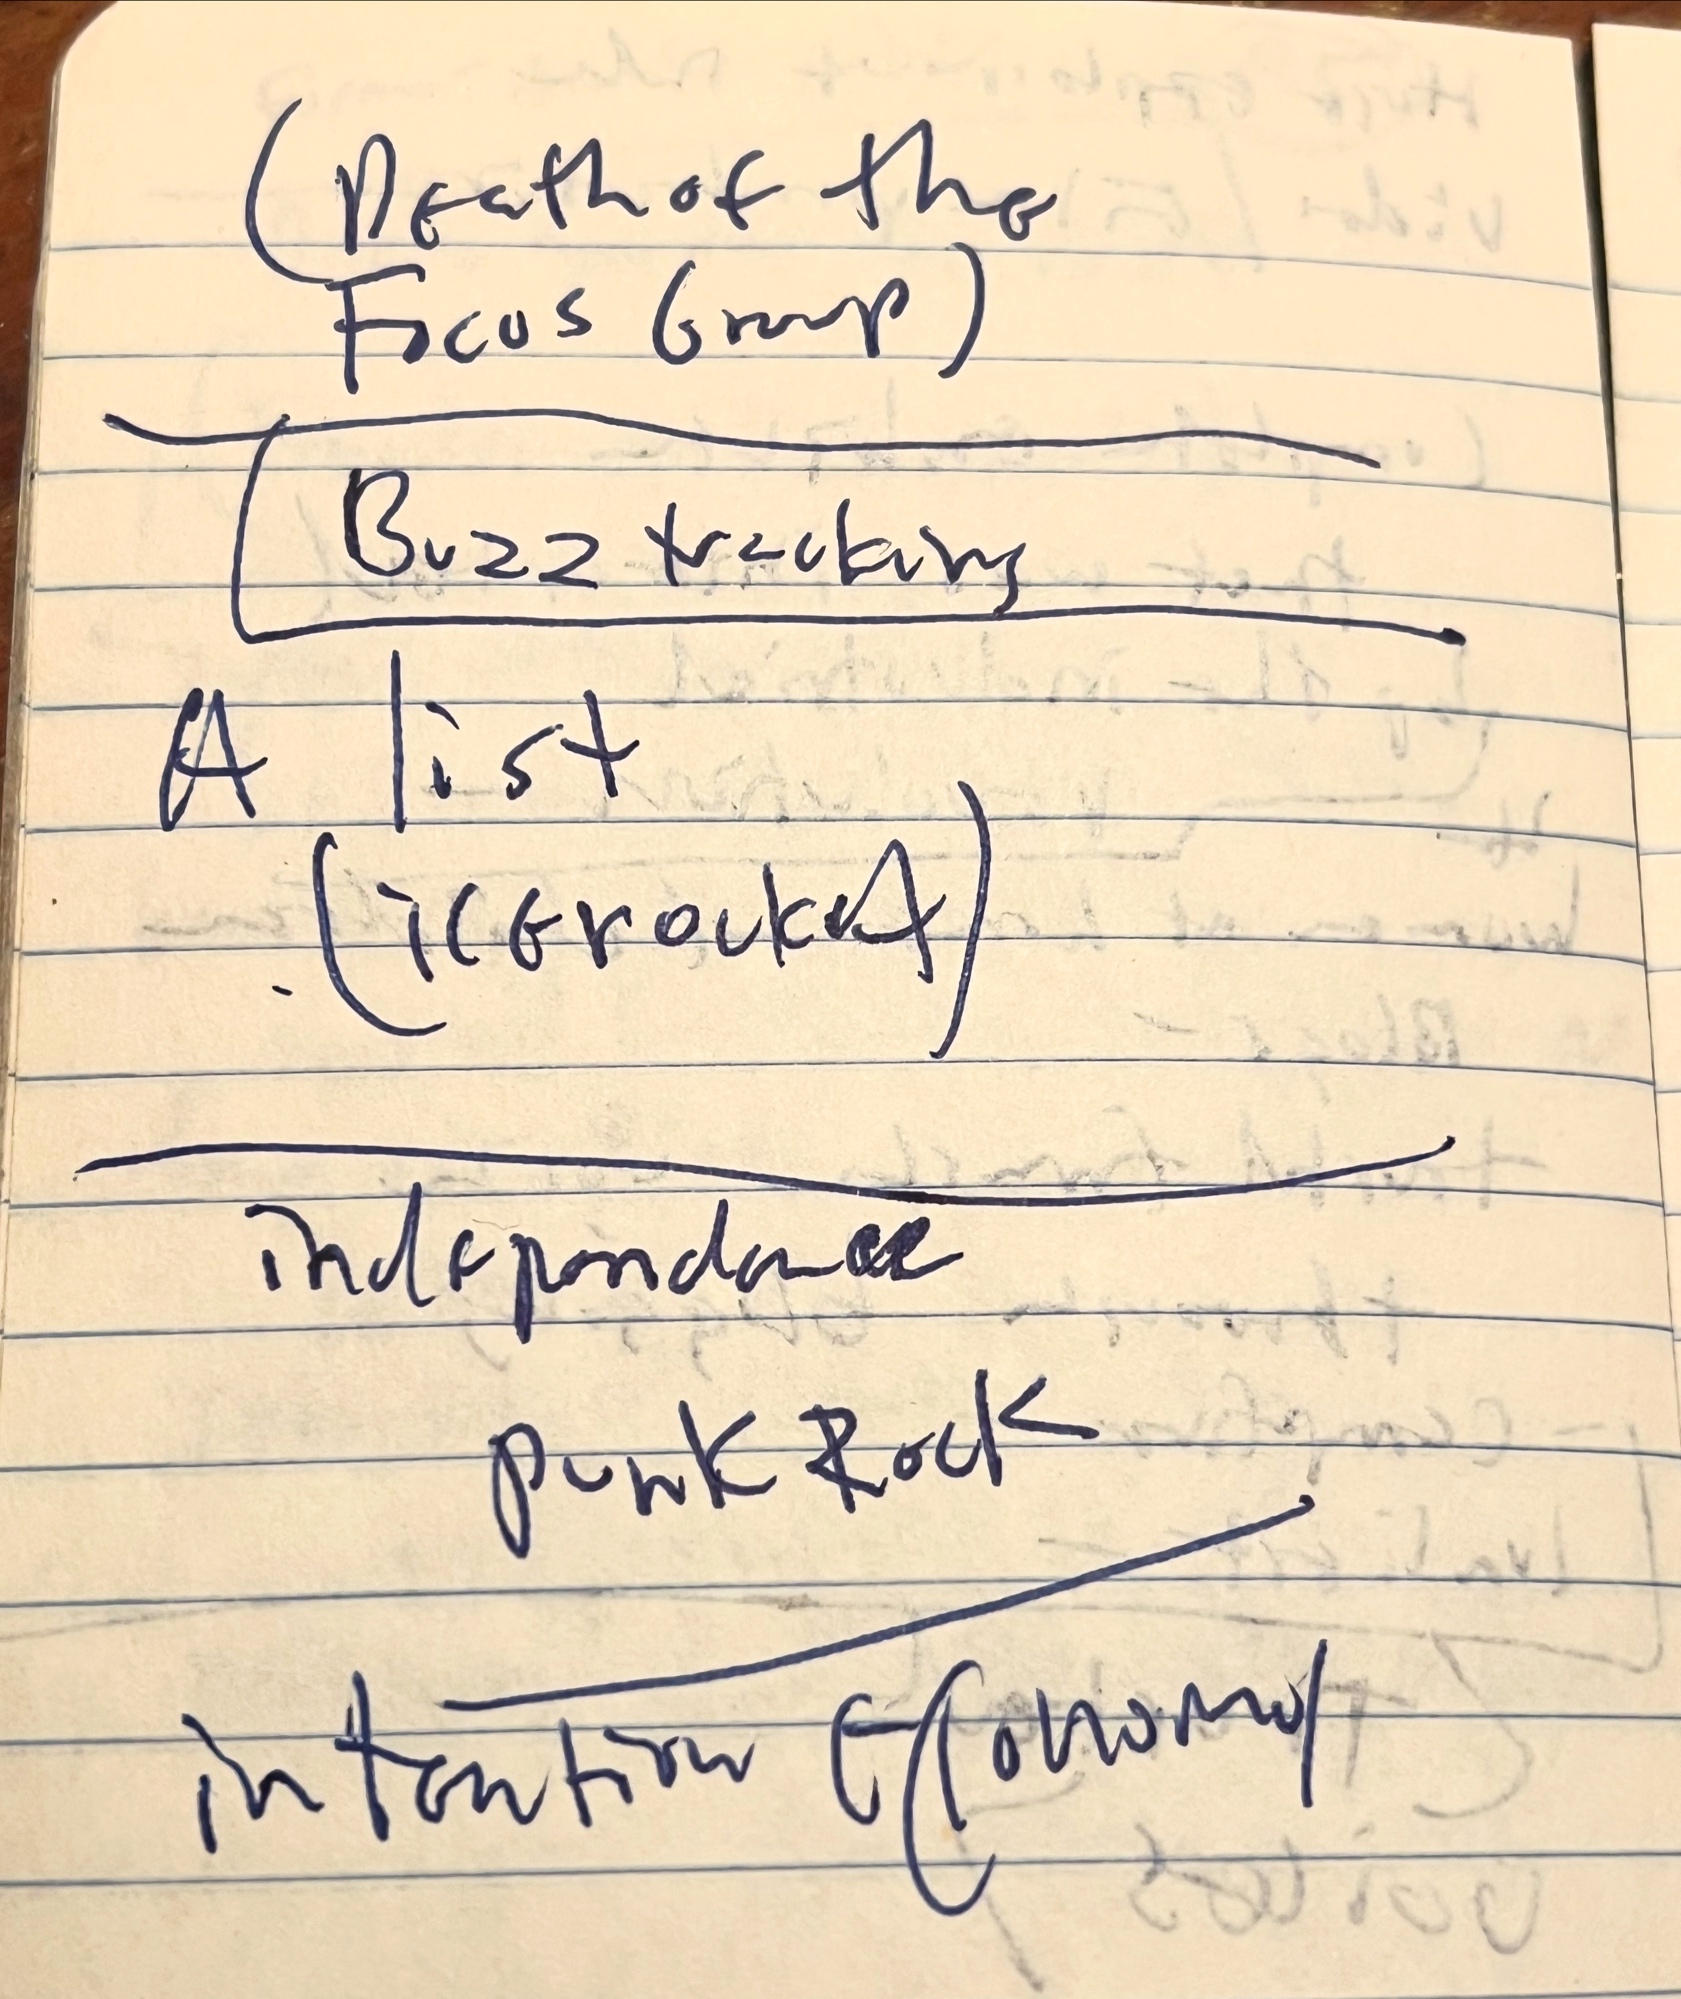 (Death of the
Focus Group)
Buzz tracking
A list
(icerocket)
independence
punk Rock
intention economy